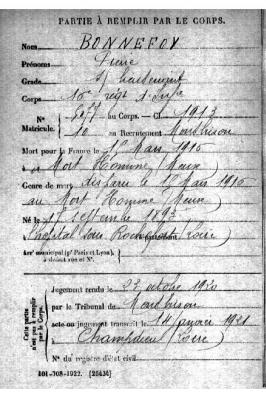 PARTIE À REMPLIR PAR LE CORPS.
Nom BONNEFOY
Prénoms Pierre
Grade S/ Lieutenant
Corps 16e Régt d'Infie
N° Matricule. au Corps. — Cl 1913
10 au Recrutement Montbrison
Mort pour la France le Mars 1916
à Mort Homme (Meuse)
Genre de mort disparu le Mars 1916
au Mort Homme (Meuse)
Né le septembre 1893
à l'hôpital sous Rochefort (Loire)
Arrt municipal (pr Paris et Lyon),
à défaut rue et N°.
Cette partie n'est pas à remplir par le Corps.
Jugement rendu le 22 octobre 1920
par le Tribunal de Montbrison
acte ou jugement transcrit le 14 janvier 1921
à Champdieu (Loire)
N° du registre d'état civil
101-708-1922. [26434]